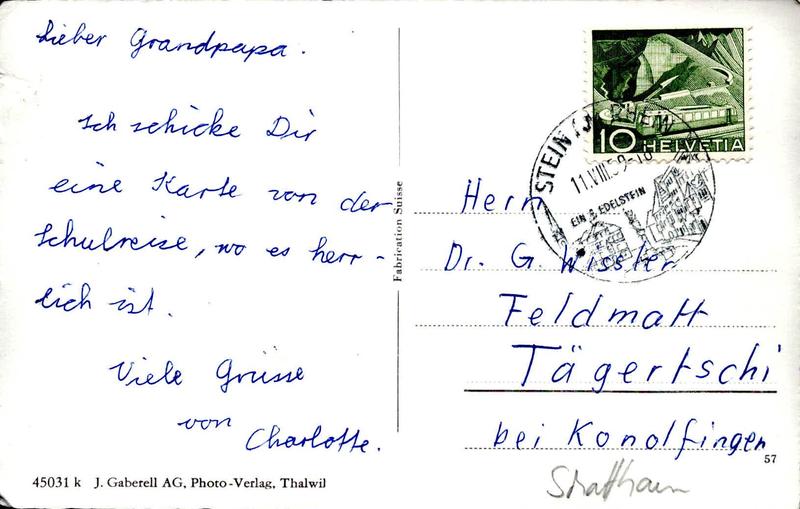 Lieber Grandpapa.
Ich schicke Dir
eine Karte von der
Schulreise, wo es herr-
lich ist.
Viele Grüsse
von
Charlotte.
45031 k J. Gaberell AG, Photo-Verlag, Thalwil
Fabrication Suisse
10 HELVETIA
STEIN
11.VIII.59-18
EIN EDELSTEIN
Herrn
Dr. G. Wissler
Feldmatt
Tägertschi
bei Konolfingen
57